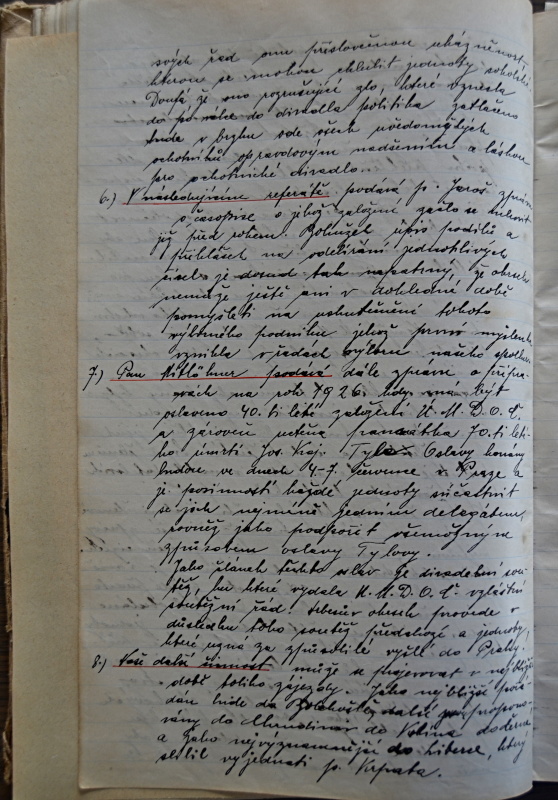 svých řad onu příslovečnou ukázněnost,
kterou se mohou chlubit jednoty sokolské.
Doufá, že ono rozrušující zlo, které vnesla
do po válce do divadla politika zatlačeno
bude v brzku ode všech uvědomělých
ochotníků opravdovým nadšením a láskou
pro ochotnické divadlo.
6.) V následujícím referátě podává p. Jaroš zprávu
o časopise o jehož založení začlo se mluvit
již před rokem. Bohužel upis podílů a
přihlášek na odebírání jednotlivých
čísel je dosud tak nepatrný, že okrsek
nemůže ještě ani v dohledné době
pomýšleti na uskutečnění tohoto
výborného podniku jehož první myšlenka
vznikla v řadách výboru našeho spolku.
7.) Pan podává dále zprávu o přípra-
vách na rok 1926. kdy má být
oslaveno 40. ti leté založení Ú. M. D. O. Č.
a zároveň uctěna památka 70. ti leté-
ho úmrtí Jos. Kaj. Tyla. Oslavy konány
budou ve dnech 4.-7. července v Praze a
je povinností každé jednoty súčastnit
se jich nejméně jedním delegátem,
rovněž jako podpořit všemožným
způsobem oslavy Tylovy.
Jako článek těchto oslav je divadelní sou-
těž, ku které vydala Ú. M. D. O. Č. zvláštní
soutěžní řád. okrsek provede v
důsledku toho soutěž předokolí a jednoty,
které uzná za způsobilé vyšle do Prahy.
8.) Naše další činnost může se projevovat v nejbližší
době toliko zájezdy. Jako nejbližší pořá-
dán bude do další
do de Kolína
a jako nejvýznamnější do který
slíbil vyjednati p. Krpata.